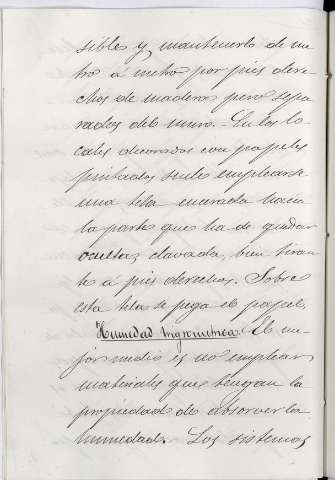 sibles y mantenerlo de me-
tro á metro por pies dere-
chos de madera pero sepa-
rados del muro. En los lo-
cales decorados con papeles
pintados suele emplearse
una tela encerada hacia
la parte que ha de quedar
oculta y clavada, bien tiran-
te á pies derechos. Sobre
esta tela se pega el papel.
Humedad higrométrica. El me-
jor medio es no emplear
materiales que tengan la
propiedad de absorver la
humedad. Los sistemas